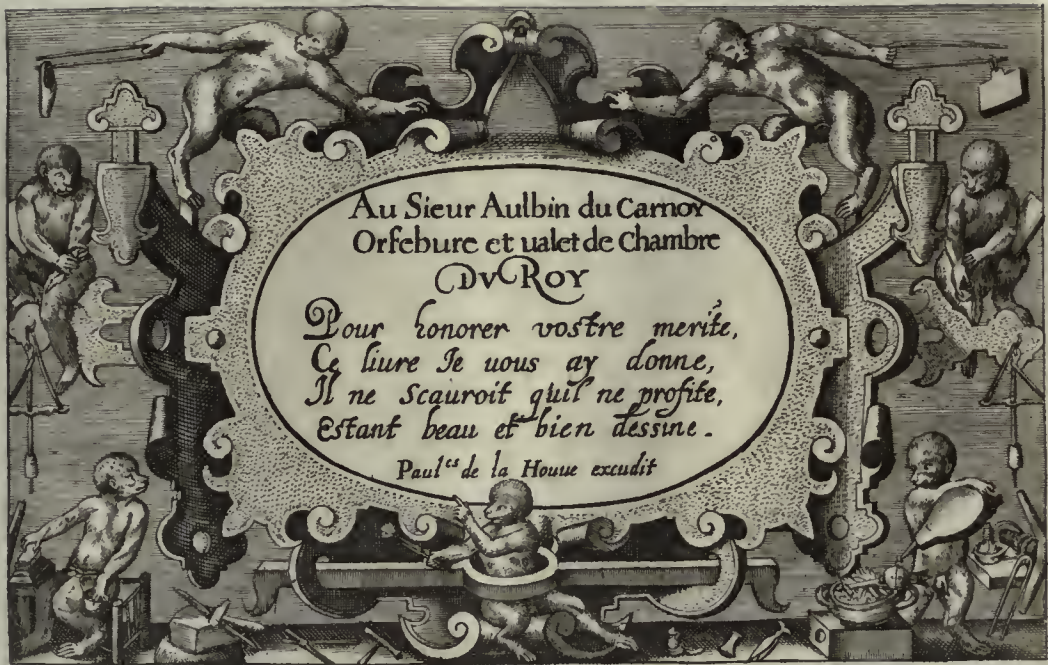 Au Sieur Aulbin du Carnoy
Orfebure et ualet de Chambre
DV ROY
Pour honorer vostre merite,
Ce liure Je uous ay donne,
Il ne scauroit quil ne profite,
Estant beau et bien dessine.
Paul.cs de la Houue excudit